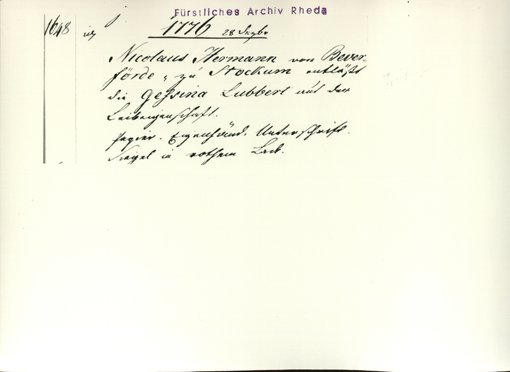 Fürstliches Archiv Rheda
1648 1776 28 Dezbr
Nicolaus Hermann von Bever-
förde, zu Stockum entläßt
die Gessina Lubbert aus der
Leibeigenschaft.
Papier. Eigenhänd. Unterschrift.
Siegel in rothem Lack.